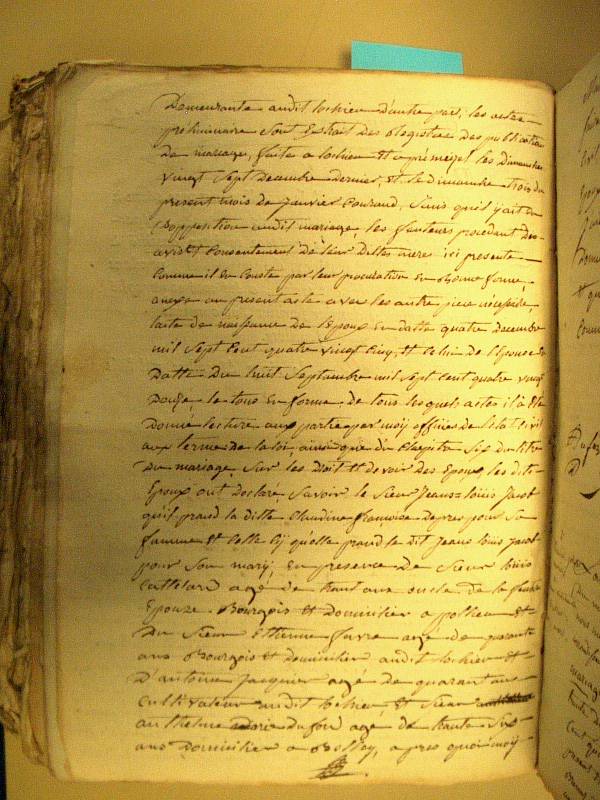 Demeurante audit lochieu d'autre part, les actes
preliminaire sont Extrait des Registre des publication
De mariage, faite a lochieu Et a prémeizel les Dimanches
vingt Sept Decembre Dernier, Et le dimanche trois du
present mois de janvier Courand, Sans qu'il y ait eu
D'opposition audit mariage, les futeurs procedant De
avis et Consentement de leur Dittes meres ici presente
Comme il en Conste par leur procuration en Bonne forme,
anexé au present acte avec les autre piece nécéssaire,
lacte de naissance de l'Epoux En datte quatre Decembre
mil Sept Cent quatre vingt Cinq, Et Celui de l'Epouse En
Datte Du huit Septembre mil Sept Cent quatre vingt
Douze, le tous En forme, de tous lesquels actes il à Eté
Donné lecture aux partie par moy officier de l'état Civil
aux termes De la loi, ainsi que du Chapitre Six du titre
Du mariage, Sur les Doit Et Devoir Des Epoux, les dits
Epoux ont Declaré, Savoir le Sieur Jeans=louis Jacob
qu'il prand la ditte Claudine françoise Depres pour Sa
famme Et Celle Cy qu'elle prand le Dit Jeans louis Jacob
pour Son mary, En presence De Sieur louis
Cattelard agé de trant ans oncle de la future
Epouze Bourgois Et Domicilier a pollieu Et
Du Sieur Ethienne favre agé de quarante
ans Bourgois Et Domicilier audit lochieu Et
D'antoine Jacquier agé de quarant ans
Cultivateur audit lochieu, Et Sieur
anthelme Dufour agé de trante Six
ans Domicilier a Belley, apres quoi moy